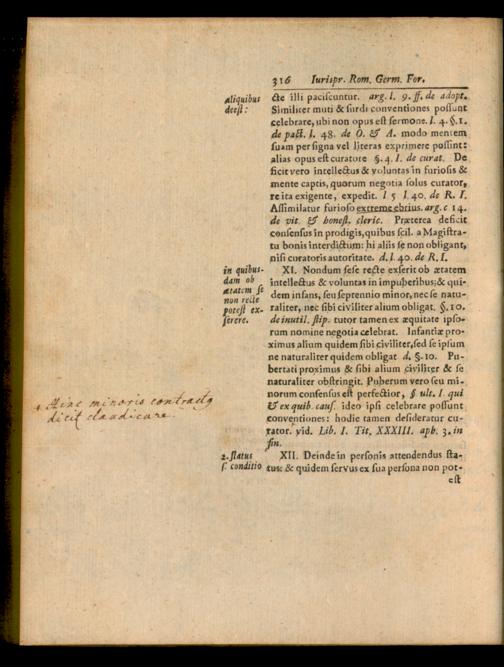 316 Iurispr. Rom. Germ. For.
aliquibus
deest:
cte illi paciscuntur. arg. l. 9. ff. de adopt.
Similiter muti & surdi conventiones possunt
celebrare, ubi non opus est sermone. l. 4. §. 1.
de pact. l. 48. de O. & A. modo mentem
suam per signa vel literas exprimere possint:
alias opus est curatore §. 4. I. de curat. De
ficit vero intellectus & voluntas in furiosis &
mente captis, quorum negotia solus curator,
re ita exigente, expedit. l 5 l. 40. de R. I.
Assimilatur furioso extreme ebrius. arg. c 14.
de vit. & honest. cleric. Præterea deficit
consensus in prodigis, quibus scil. a Magistra-
tu bonis interdictum: hi aliis se non obligant,
nisi curatoris autoritate. d. l. 40. de R. I.
in quibus-
dam ob
ætatem se
non recte
potest ex-
serere.
XI. Nondum sese recte exserit ob ætatem
intellectus & voluntas in impuberibus; & qui-
dem infans, seu septennio minor, nec se natu-
raliter, nec sibi civiliter alium obligat. §. 10.
de inutil. stip. tutor tamen ex æquitate ipso-
rum nomine negotia celebrat. Infantiæ pro-
ximus alium quidem sibi civiliter, sed se ipsum
ne naturaliter quidem obligat d. §. 10. Pu-
bertati proximus & sibi alium civiliter & se
naturaliter obstringit. Puberum vero seu mi-
norum consensus est perfectior, § ult. I. qui
& ex quib. caus. ideo ipsi celebrare possunt
conventiones: hodie tamen desideratur cu-
rator. vid. Lib. I. Tit. XXXIII. aph. 3. in
fin.
Hinc minoris contractg
dicit claudicare.
2. status
s. conditio
XII. Deinde in personis attendendus sta-
tus: & quidem servus ex sua persona non pot-
est